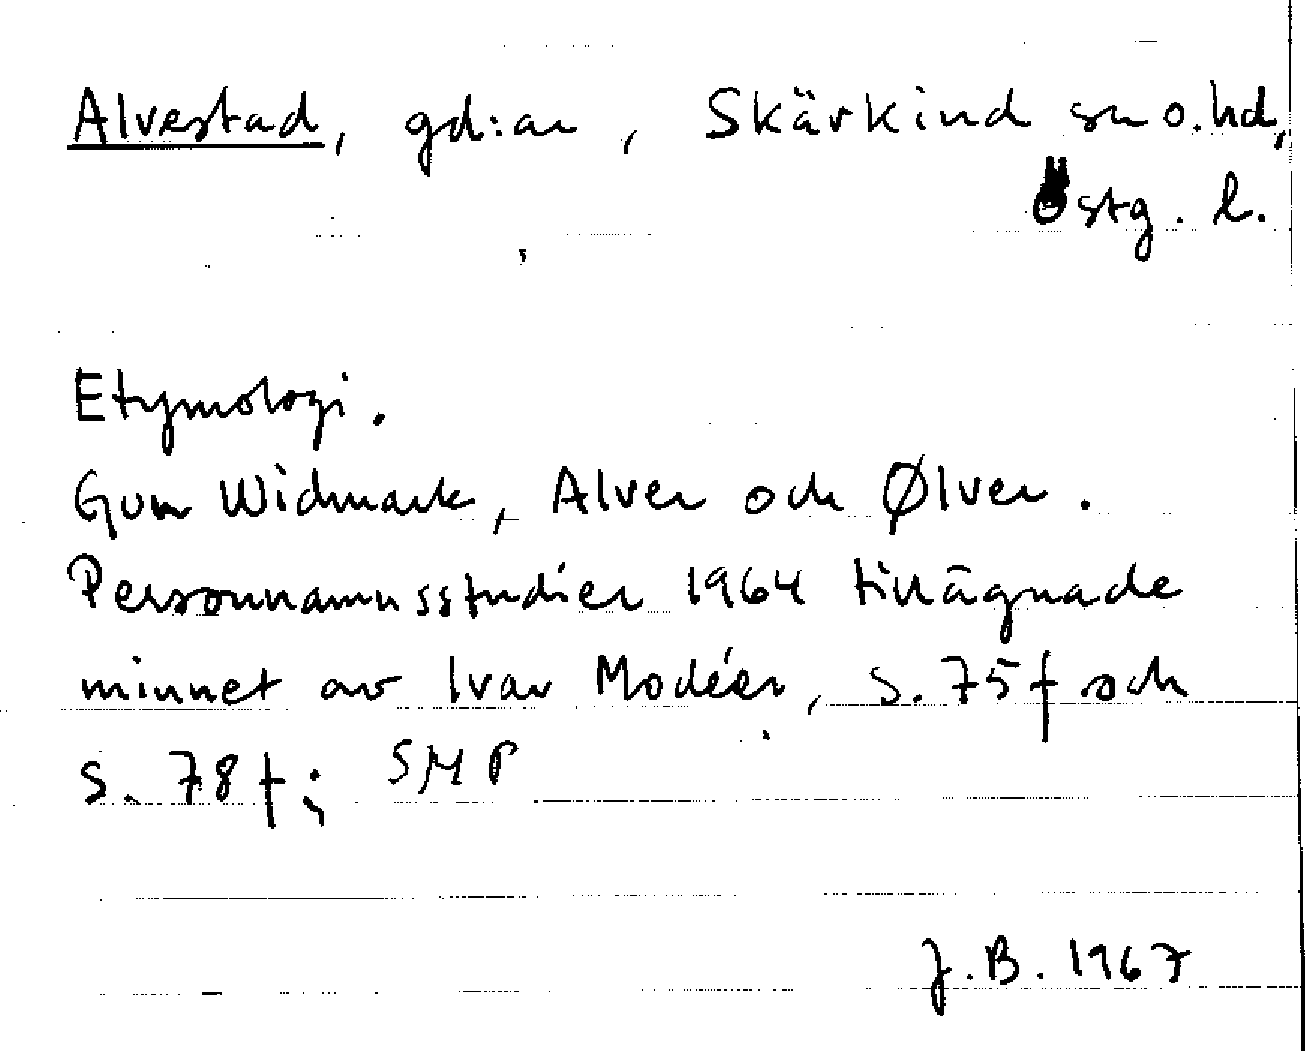 Alvestad, gd:ar, Skärkind sn o. hd,
Östg. l.
Etymologi.
Gun Widmark, Alver och Ølver.
Personnamnsstudier 1964 tillägnade
minnet av Ivar Modéer, s. 75 f och
s. 78 f; SMP
J.B. 1967